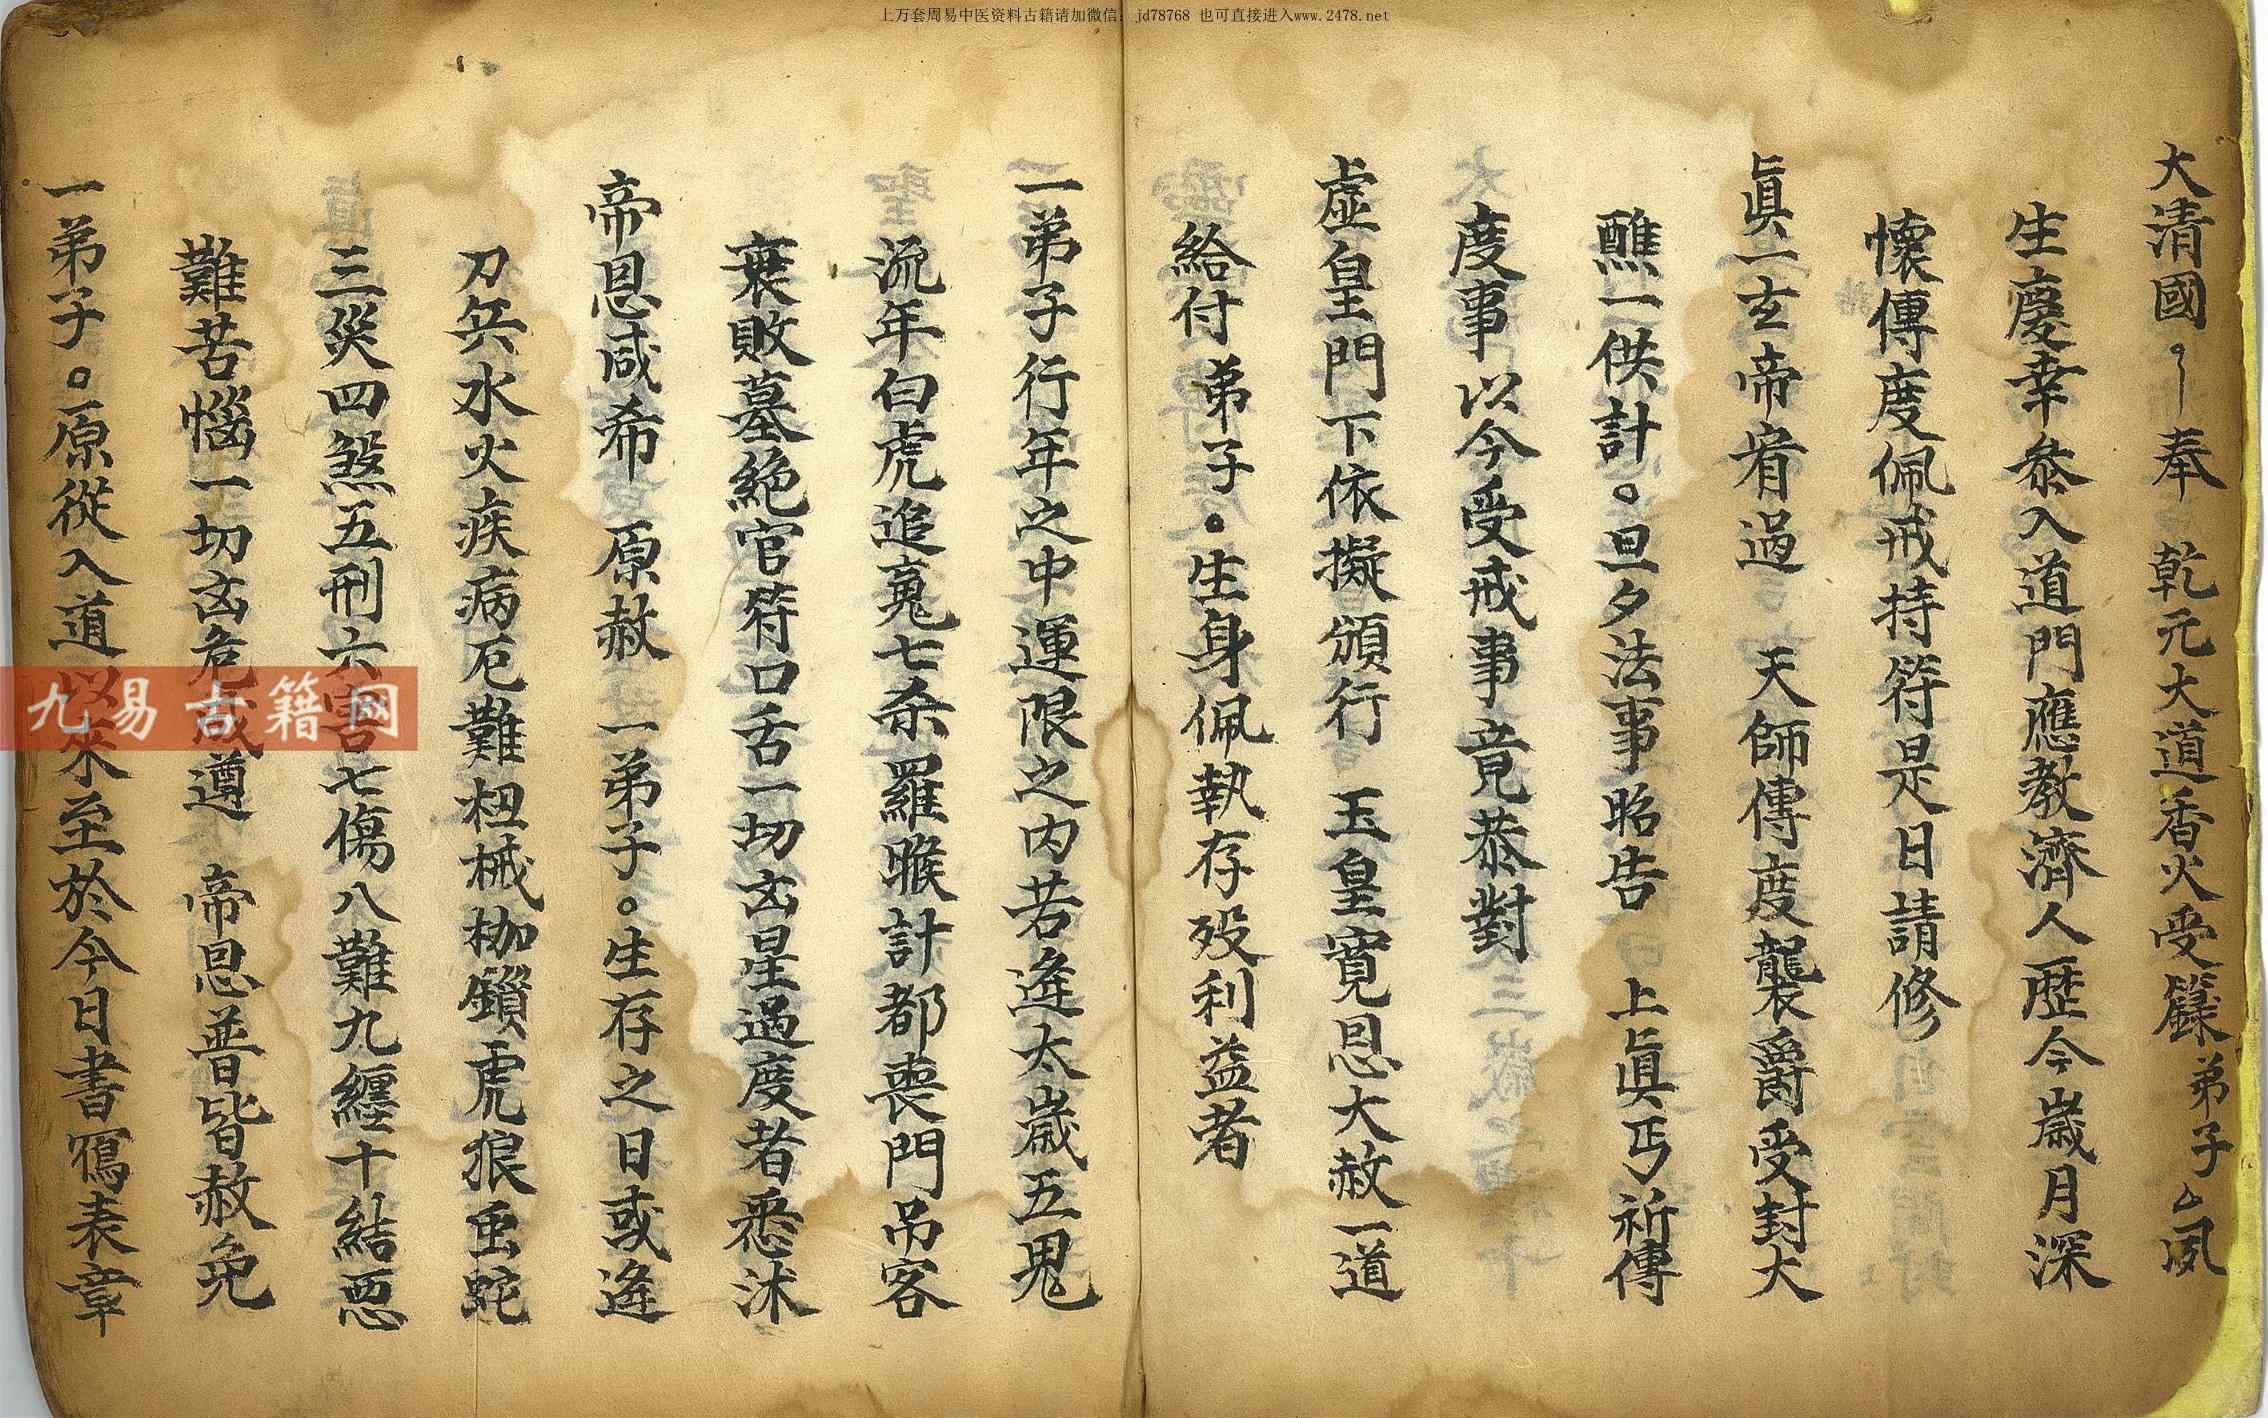 上万套周易中医资料古籍请加微信：jd78768 也可直接进入www.2478.net
大清國。奉 乾元大道香火受籙弟子ム夙
生慶幸叅入道門應教濟人歷今歲月深
懷傳度佩戒持符是日請修
眞一玄帝宥過 天師傳度襲爵受封大
醮一供計。旦夕法事昭告 上眞丐祈傳
度事以今受戒事竟恭對
虛皇門下依擬頒行 玉皇寛恩大赦一道
給付弟子。生身佩執存殁利益者
一弟子行年之中運限之内若逄太歲五鬼
流年白虎追䰟七杀羅睺計都喪門吊客
衰敗墓絶官符口舌一切㐫星過度者悉沭
帝恩咸希 原赦 一弟子。生存之日或逄
刀兵水火疾病厄難杻械枷鎖虎狼䖝蛇
三災四煞五刑六害七傷八難九纏十結惡
難苦惱一切㐫危咸遵 帝恩普皆赦免
一弟子。原從入道以來至於今日書寫表章
九易古籍网